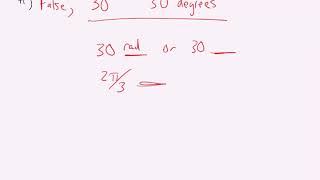 False, 30 30 degrees
30 rad or 30 __
2π/3 __